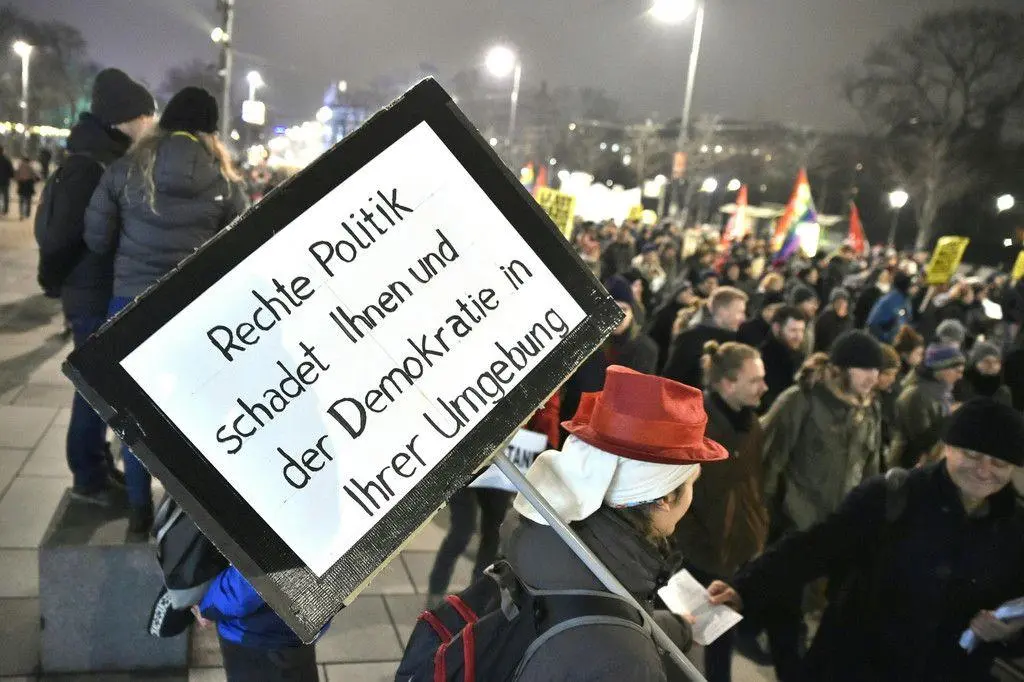 Rechte Politik
schadet Ihnen und
der Demokratie in
Ihrer Umgebung